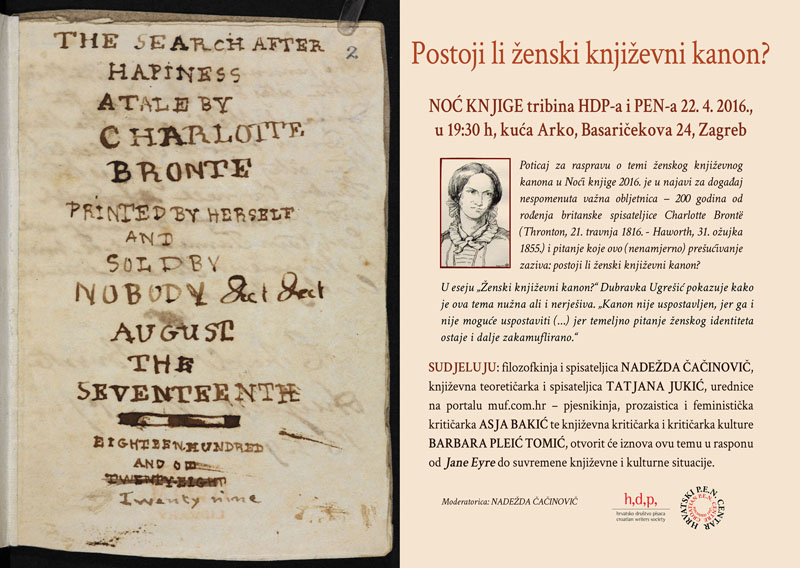 THE SEARCH AFTER
2
HAPINESS
A TALE BY
CHARLOTTE
BRONTE
PRINTED BY HERSELF
AND
SOLD BY
NOBODY &ct &ct
AUGUST
THE
SEVENTEENTH
EIGHTEEN HUNDRED
AND
TWENTY EIGHT
Twenty nine
Postoji li ženski književni kanon?
NOĆ KNJIGE tribina HDP-a i PEN-a 22. 4. 2016.,
u 19:30 h, kuća Arko, Basaričekova 24, Zagreb
Poticaj za raspravu o temi ženskog književnog
kanona u Noći knjige 2016. je u najavi za događaj
nespomenuta važna obljetnica – 200 godina od
rođenja britanske spisateljice Charlotte Brontë
(Thronton, 21. travnja 1816. - Haworth, 31. ožujka
1855.) i pitanje koje ovo (nenamjerno) prešućivanje
zaziva: postoji li ženski književni kanon?
U eseju „Ženski književni kanon?“ Dubravka Ugrešić pokazuje kako
je ova tema nužna ali i nerješiva. „Kanon nije uspostavljen, jer ga i
nije moguće uspostaviti (...) jer temeljno pitanje ženskog identiteta
ostaje i dalje zakamuflirano.“
SUDJELUJU: filozofkinja i spisateljica NADEŽDA ČAČINOVIČ,
književna teoretičarka i spisateljica TATJANA JUKIĆ, urednice
na portalu muf.com.hr – pjesnikinja, prozaistica i feministička
kritičarka ASJA BAKIĆ te književna kritičarka i kritičarka kulture
BARBARA PLEIĆ TOMIĆ, otvorit će iznova ovu temu u rasponu
od Jane Eyre do suvremene književne i kulturne situacije.
Moderatorica: NADEŽDA ČAČINOVIČ
h,d,p,
hrvatsko društvo pisaca
croatian writers society
HRVATSKI P.E.N. CENTAR
CROATIAN P.E.N. CENTRE